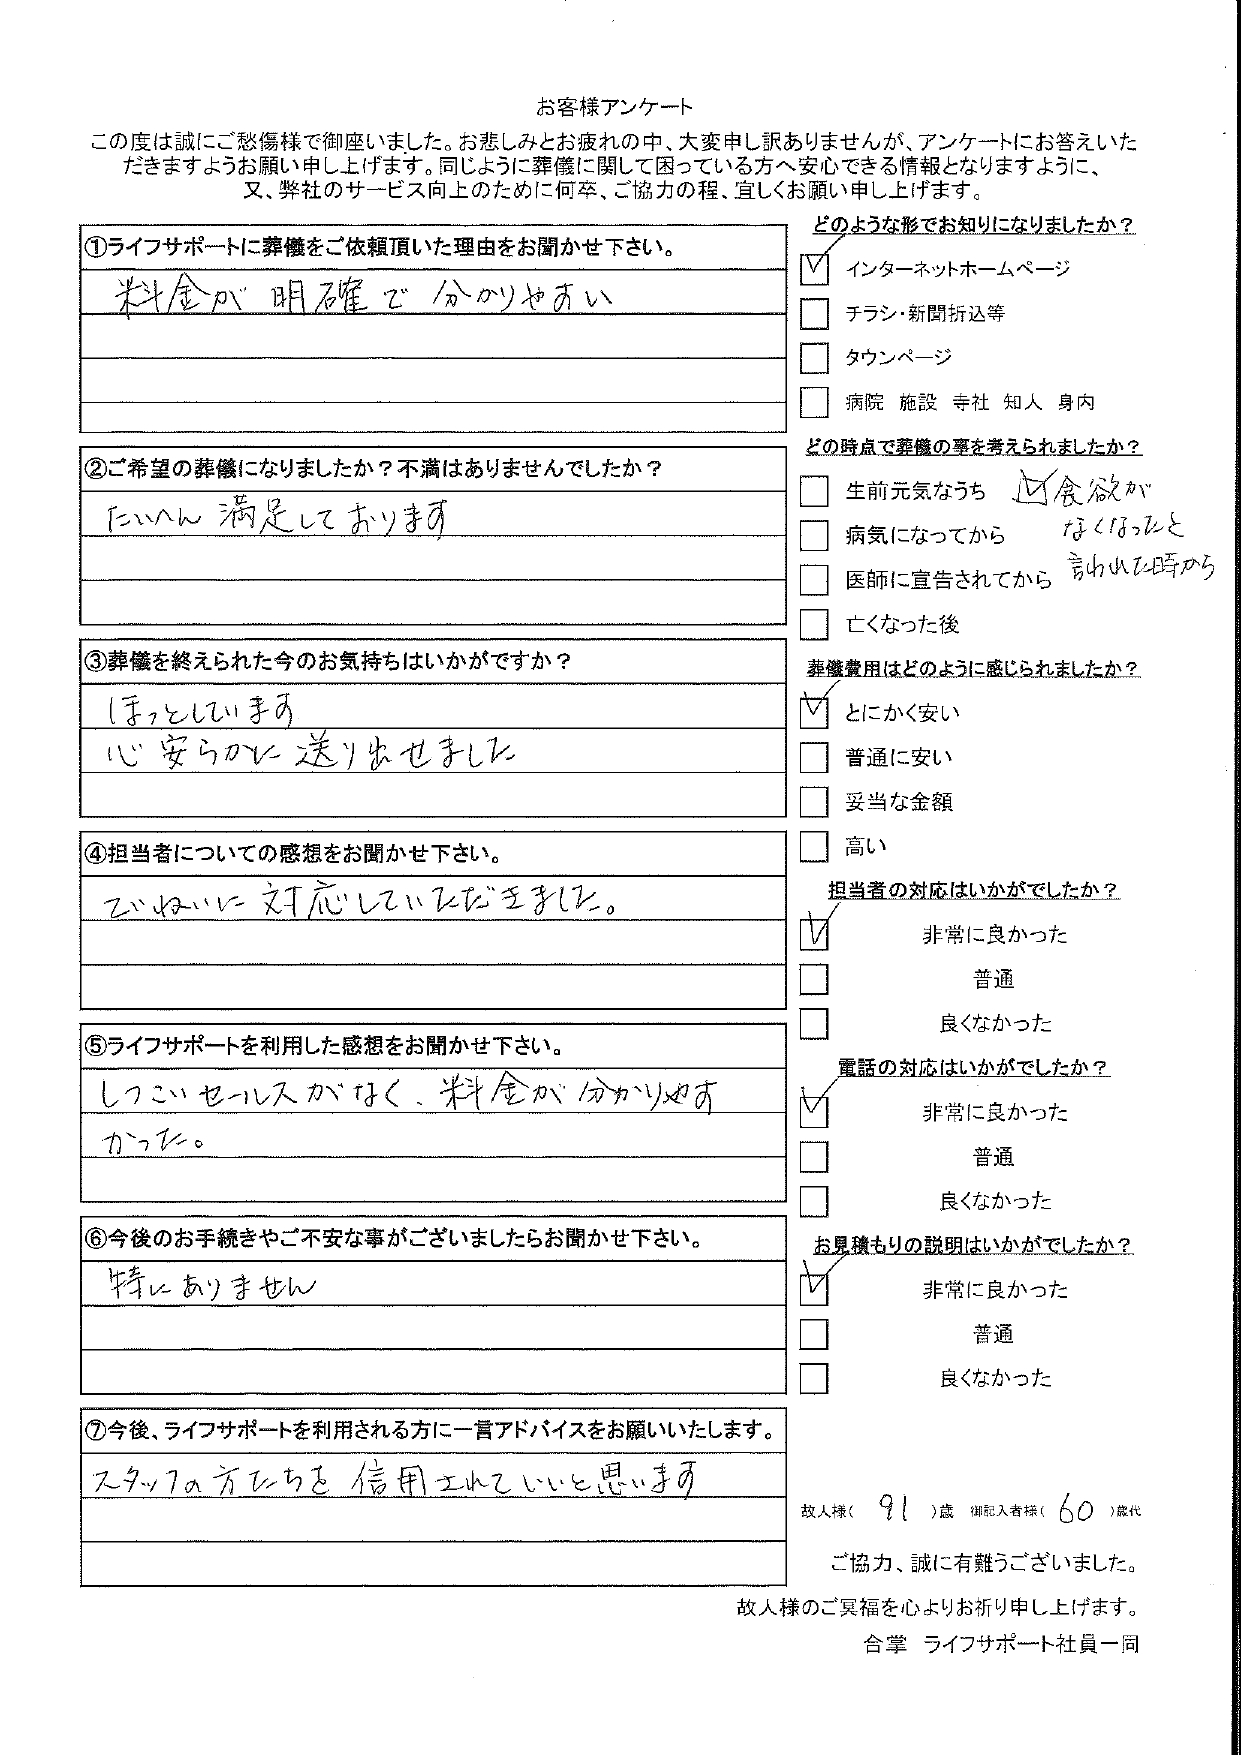 お客様アンケート
この度は誠にご愁傷様で御座いました。お悲しみとお疲れの中、大変申し訳ありませんが、アンケートにお答えいた
だきますようお願い申し上げます。同じように葬儀に関して困っている方へ安心できる情報となりますように、
又、弊社のサービス向上のために何卒、ご協力の程、宜しくお願い申し上げます。
①ライフサポートに葬儀をご依頼頂いた理由をお聞かせ下さい。
料金が 明確で 分かりやすい
②ご希望の葬儀になりましたか？不満はありませんでしたか？
たいへん 満足しております
③葬儀を終えられた今のお気持ちはいかがですか？
ほっとしています
心 安らかに 送り出せました
④担当者についての感想をお聞かせ下さい。
ていねいに 対応していただきました。
⑤ライフサポートを利用した感想をお聞かせ下さい。
しつこいセールスがなく、料金が分かりやす
かった。
⑥今後のお手続きやご不安な事がございましたらお聞かせ下さい。
特に ありません
⑦今後、ライフサポートを利用される方に一言アドバイスをお願いいたします。
スタッフの方たちを 信用されていいと思います
どのような形でお知りになりましたか？
インターネットホームページ
チラシ・新聞折込等
タウンページ
病院 施設 寺社 知人 身内
どの時点で葬儀の事を考えられましたか？
生前元気なうち 食欲が
なくなったと
病気になってから
言われた時から
医師に宣告されてから
亡くなった後
葬儀費用はどのように感じられましたか？
とにかく安い
普通に安い
妥当な金額
高い
担当者の対応はいかがでしたか？
非常に良かった
普通
良くなかった
電話の対応はいかがでしたか？
非常に良かった
普通
良くなかった
お見積もりの説明はいかがでしたか？
非常に良かった
普通
良くなかった
故人様（ 91 ）歳 御記入者様（ 60 ）歳代
ご協力、誠に有難うございました。
故人様のご冥福を心よりお祈り申し上げます。
合掌 ライフサポート社員一同